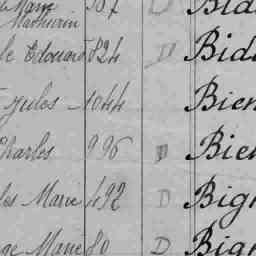 Marie 567 D Bid
Mathurin
le Edouard 824 D Bid
Jules 1044 Bien
Charles 996 D Bien
les Marie 492 D Big
ge Marie 80 D Bign